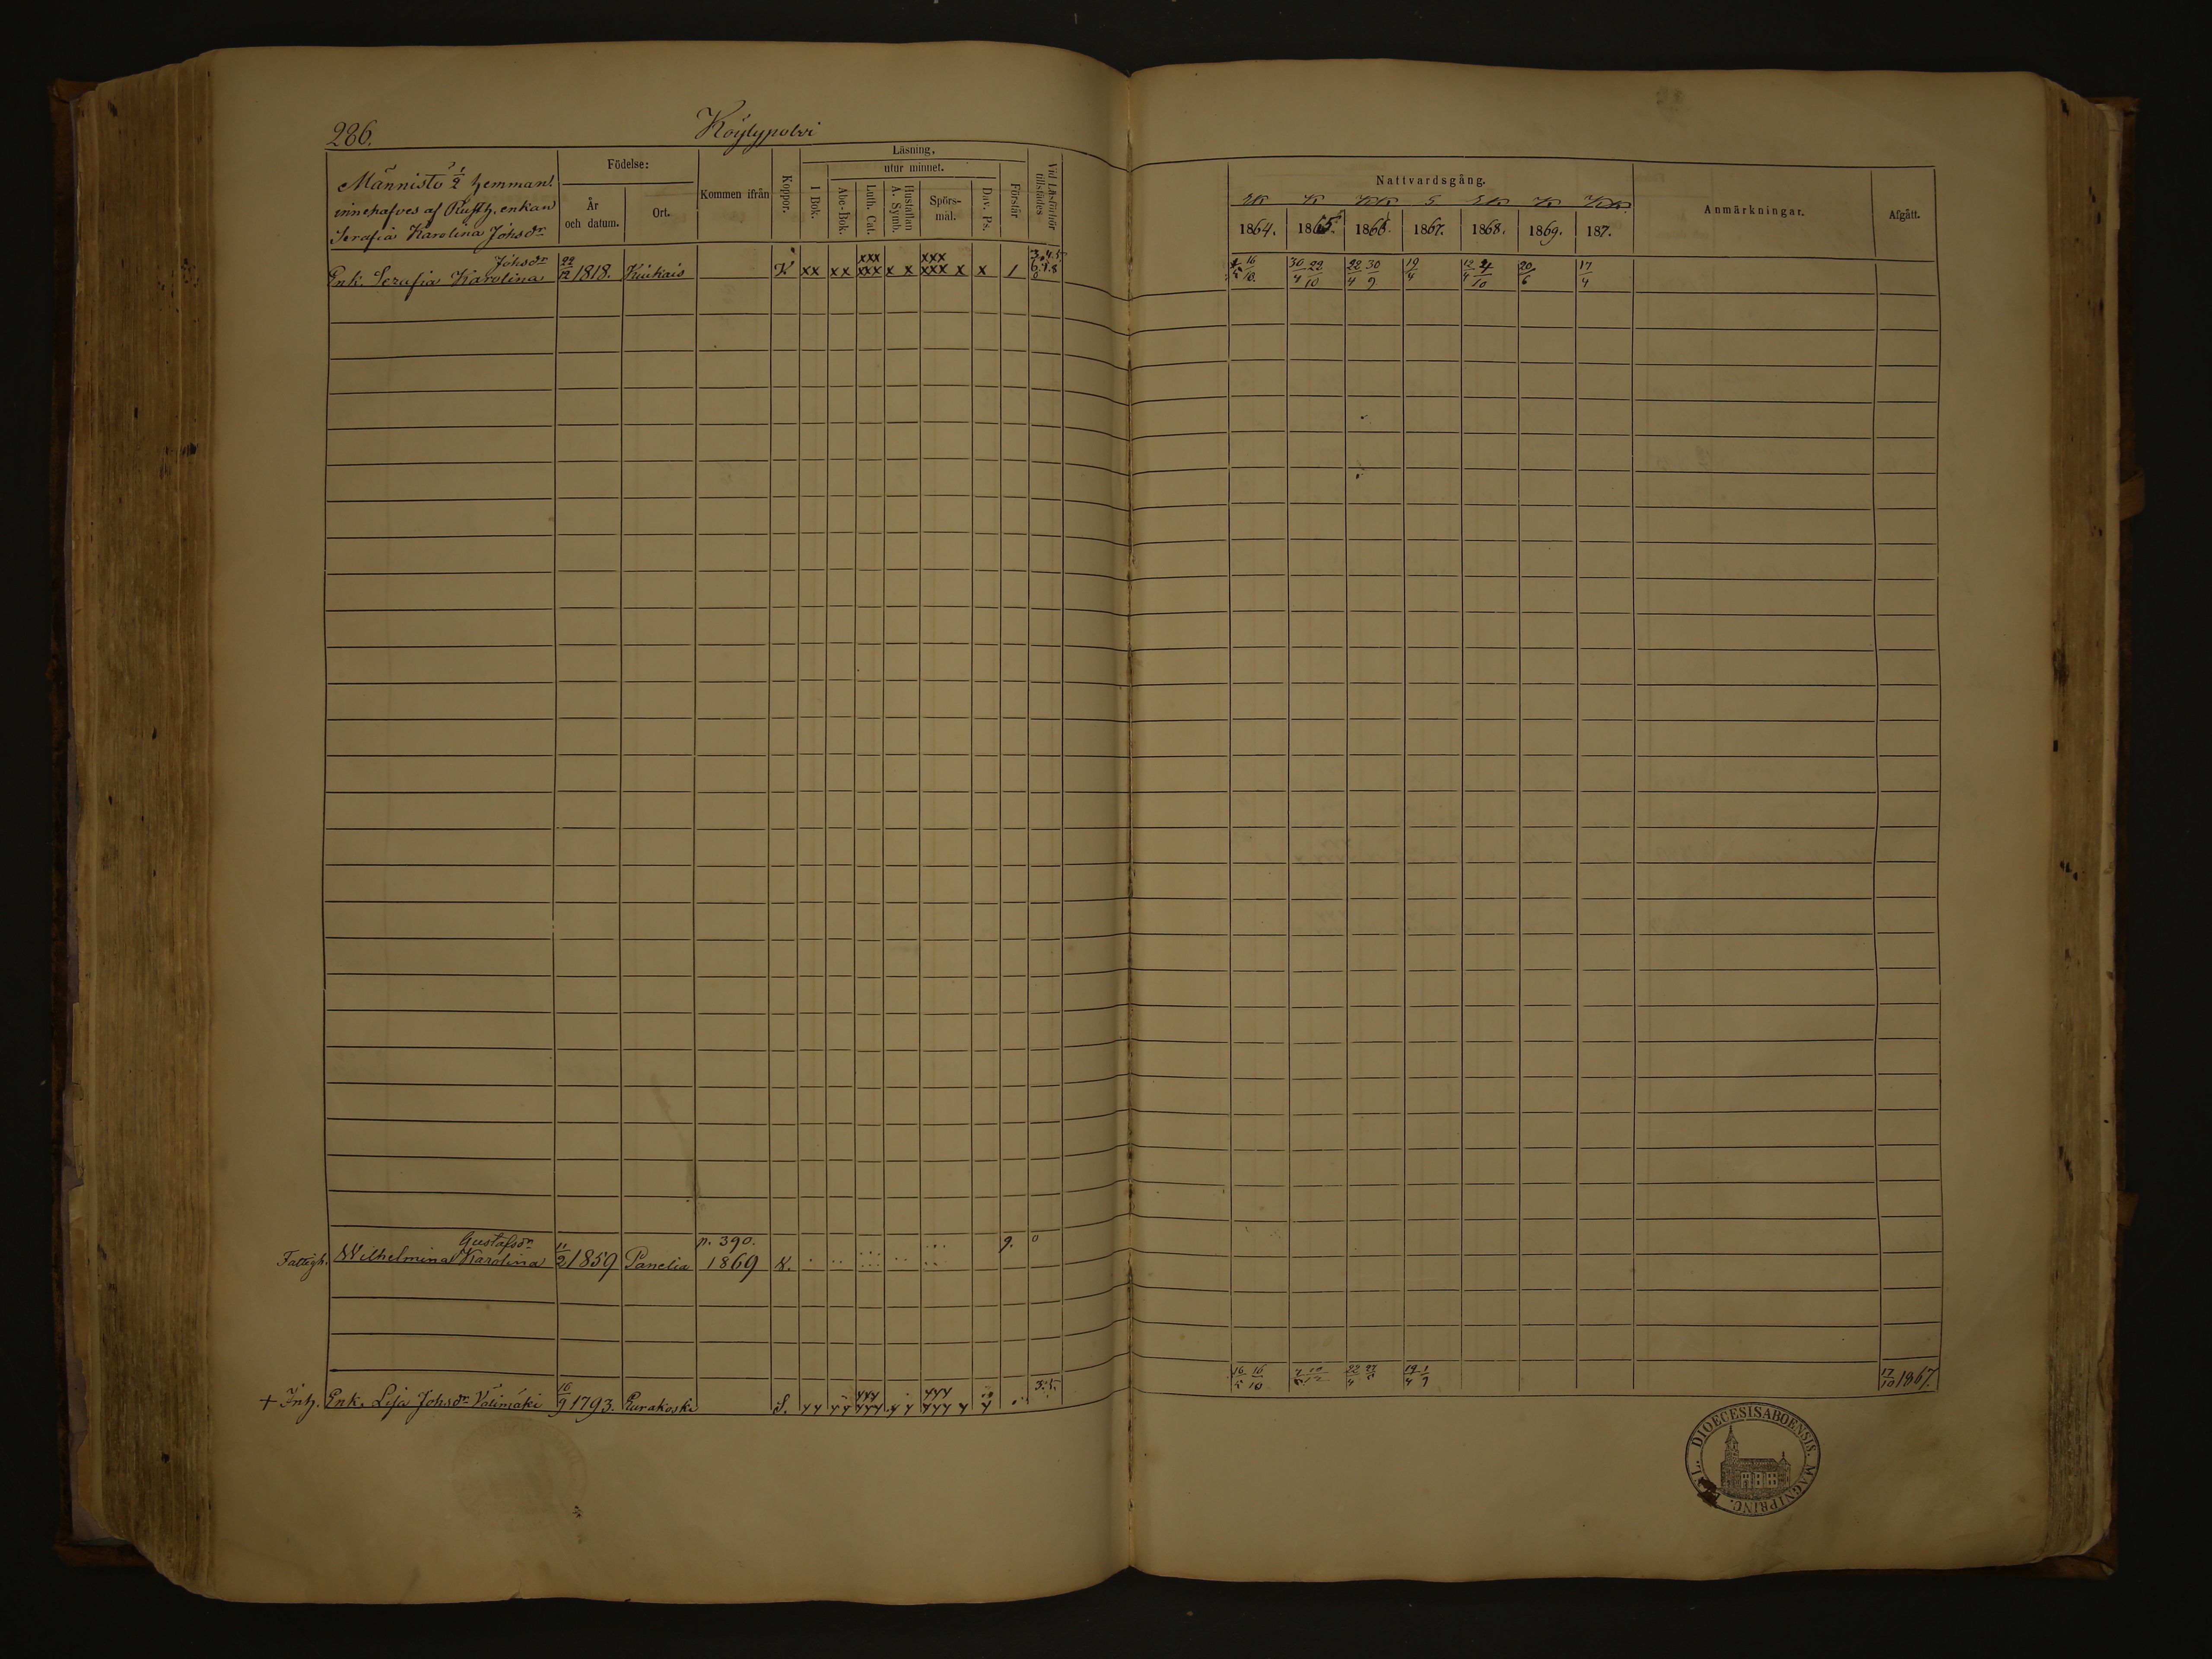 286.
Köylypolvi
Männistö 1/2 hemman
innehafves af Rusth. enkan
Serafia Karolina Johsdr
Födelse:
År och datum.
Ort.
Kommen ifrån
Koppor.
Läsning.
utur minnet.
I Bok.
Abc-Bok.
Luth. Cat.
Hustaflan A. Symb.
Spörs-mål.
Dav. Ps.
Förstår
Vid Läsförhör tillstädes
Nattvardsgång.
1864. 1865. 1866. 1867. 1868. 1869. 187.
Anmärkningar.
Afgått.
Johsdr
Enk. Serafia Karolina 22/12 1818. Kiukais K xx xx xxx xxx x x xxx xxx x x 1 3.4.5. 6.7.8 16/10. 30/4 22/10 22/4 30/9 19/4 12/4 4/10 20/6 17/4
Gustafsdr p. 390. 9. 0
Fattigh. Wilhelmina Karolina 11/2 1859 Panelia 1869 K.
+ Inh. Enk. Lisa Johsdr Välimäki 16/9 1793. Eurakoski S. 3.5. 16/5 16/10 22/4 19/4 1/9 17/10 1867.
DIOECESIS ABOENSIS. MAGNI PRINC. FINL.